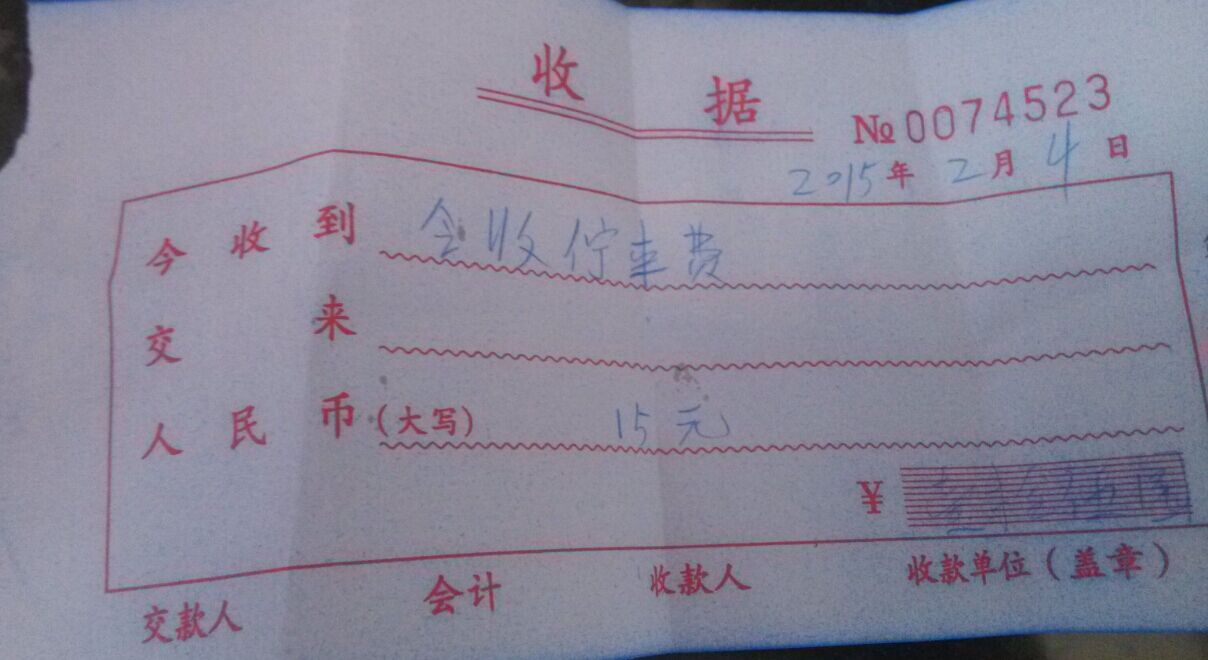 收据
№0074523
2015年2月4日
今收到 今收停车费
交来
人民币(大写) 15元
¥
交款人 会计 收款人 收款单位(盖章)